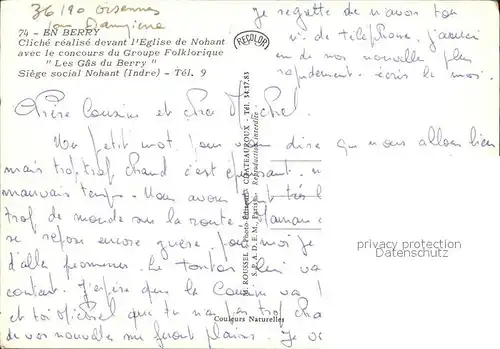 36190 Orsennes
74 - EN BERRY
Cliché réalisé devant l'Eglise de Nohant
avec le concours du Groupe Folklorique
" Les Gâs du Berry "
Siège social Nohant (Indre) - Tél. 9
RECOLOR
Je regrette de n'avoir ton
n. de téléphone, j'aurais
eu de nos nouvelles plus
rapidement. écris le moi.
Chère Cousine et cher Michel
Un petit mot pour vous dire que nous allons bien
mais trop trop chaud c'est
mauvais temps. Nous avons très
trop de monde sur la route. Maman
se repose encore guère. pour moi je
d'aller promener. Le tonton lui va
content. J'espère que la Cousine va
et toi Michel que tu n'as pas trop cha
de vos nouvelles me feront plaisir. Je v
M. ROUSSEL - Photo-Editeur - CHATEAUROUX - Tél. 34.17.83
S.P.A.D.E.M., Paris - Reproduction interdite -
Couleurs Naturelles
privacy protection
Datenschutz